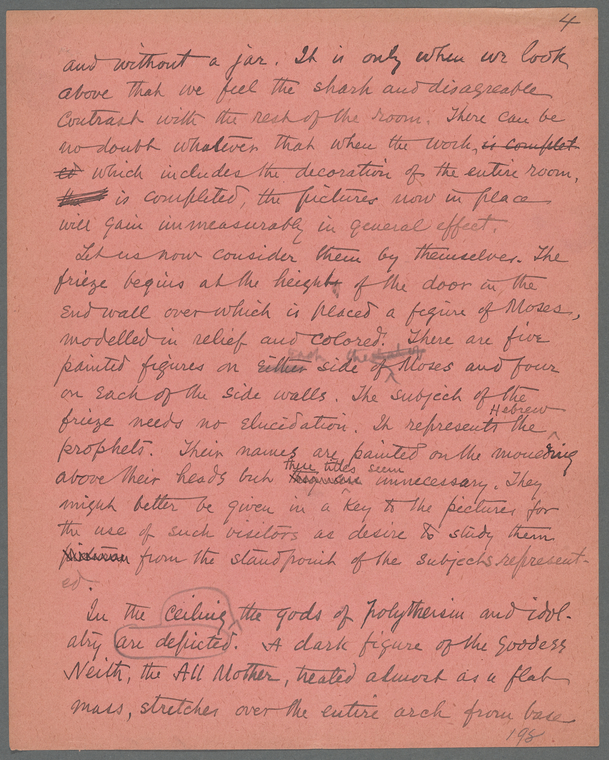 4
and without a jar. It is only when we look
above that we feel the shark and disagreable
contrast with the rest of the room. There can be
no doubt whatever that when the work, is complet
ed which includes the decoration of the entire room,
is completed, the pictures now in place
will gain immeasurably in general effect.
Let us now consider them by themselves. The
frieze begins at the height of the door in the
end wall over which is placed a figure of Moses,
modelled in relief and colored. There are five
each
painted figures on either side of Moses and four
on each of the side walls. The subject of the
Hebrew
frieze needs no elucidation. It represents the
prophets. Their names are painted on the moulding
these titles seem
above their heads but unnecessary. They
might better be given in a key to the pictures for
the use of such visitors as desire to study them
from the standpoint of the subjects represent-
ed.
In the ceiling the gods of polytheism and idol-
atry are depicted. A dark figure of the Goddess
Neith, the All Mother, treated almost as a flat
mass, stretches over the entire arch from base
198